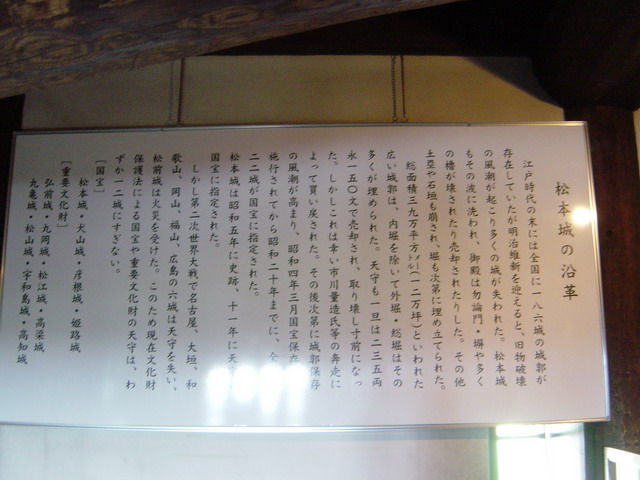 松本城の沿革
江戸時代の末には全国に一八六城の城郭が
存在していたが明治維新を迎えると、旧物破壊
の風潮が起こり多くの城が失われた。松本城
もその波に洗われ、御殿は勿論門・塀や多く
の櫓が壊されたり売却されたりした。その他
土塁や石垣も崩され、堀も次第に埋め立てられた。
総面積三九万平方メートル(一二万坪)といわれた
広い城郭は、内堀を除いて外堀・総堀はその
多くが埋められた。天守も一旦は二三五両
永一五〇文で売却され、取り壊し寸前になっ
た。しかしこれは幸い市川量造氏等の奔走に
よって買い戻された。その後次第に城郭保存
の風潮が高まり、昭和四年三月国宝保存
施行されてから昭和二十年までに、全
二二城が国宝に指定された。
松本城は昭和五年に史跡、十一年に天守
国宝に指定された。
しかし第二次世界大戦で名古屋、大垣、和
歌山、岡山、福山、広島の六城は天守を失い、
松前城は火災を受けた。このため現在文化財
保護法による国宝や重要文化財の天守は、わ
ずか一二城にすぎない。
[国宝]
松本城・犬山城・彦根城・姫路城
[重要文化財]
弘前城・丸岡城・松江城・高梁城
丸亀城・松山城・宇和島城・高知城